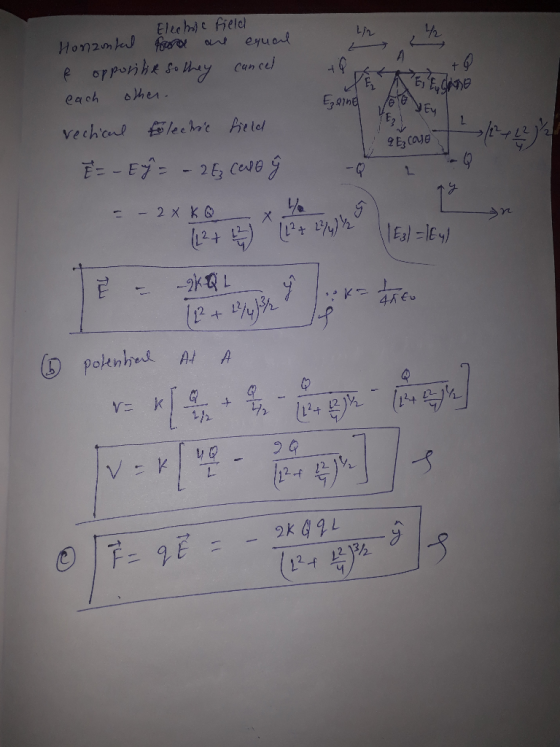 Electric field
Horizontal are equal
& opposite so they cancel
each other.
Vertical Electric field
E⃗ = - E ŷ = - 2E₃ cosθ ŷ
= - 2 × KQ/(L² + L²/4) × L/(L² + L²/4)^1/2 ŷ
|E₃| = |E₄|
E⃗ = -2KQL/(L² + L²/4)^3/2 ŷ ∵ K = 1/4πε₀
L/2 L/2
+Q A +Q
E₂ E₁ E₄ sinθ
E₃ sinθ θ θ
E₃ E₄
2E₃ cosθ L (L² + L²/4)^1/2
-Q L -Q
y
x
(b) potential At A
V = K [Q/L/2 + Q/L/2 - Q/(L² + L²/4)^1/2 - Q/(L² + L²/4)^1/2]
V = K [4Q/L - 2Q/(L² + L²/4)^1/2]
(c) F⃗ = qE⃗ = - 2KQqL/(L² + L²/4)^3/2 ŷ